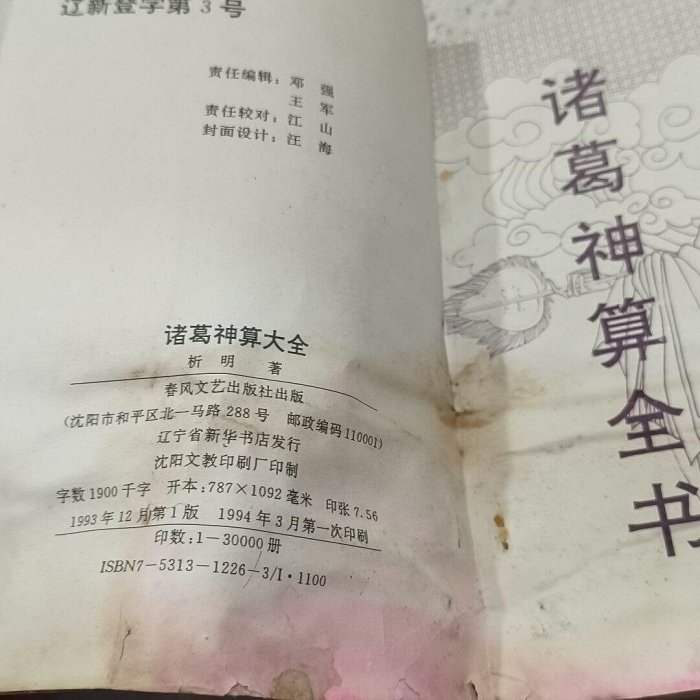 辽新登字第3号
责任编辑：邓 强
王 军
责任较对：江 山
封面设计：汪 海
诸葛神算大全
析 明 著
春风文艺出版社出版
(沈阳市和平区北一马路288号 邮政编码110001)
辽宁省新华书店发行
沈阳文教印刷厂印制
字数1900千字 开本：787×1092毫米 印张7.56
1993年12月第1版 1994年3月第一次印刷
印数：1-30000册
ISBN7-5313-1226-3/I·1100
诸葛神算全书